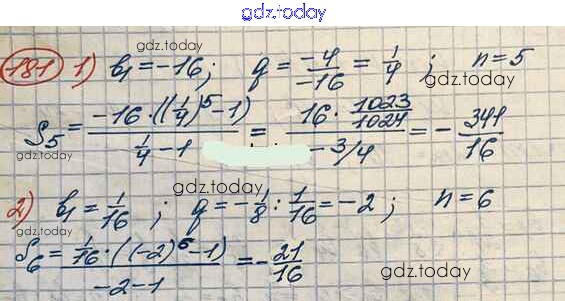 gdz.today
181 1) b₁ = -16; q = -4/-16 = 1/4; n = 5
gdz.today
gdz.today
S₅ = -16·((1/4)⁵ - 1)/(1/4 - 1) = 16·1023/1024/(-3/4) = -341/16
gdz.today
gdz.today
2) b₁ = 1/16; q = -1/8 : 1/16 = -2; n = 6
gdz.today
S₆ = 1/16·((-2)⁶ - 1)/(-2 - 1) = -21/16
gdz.today